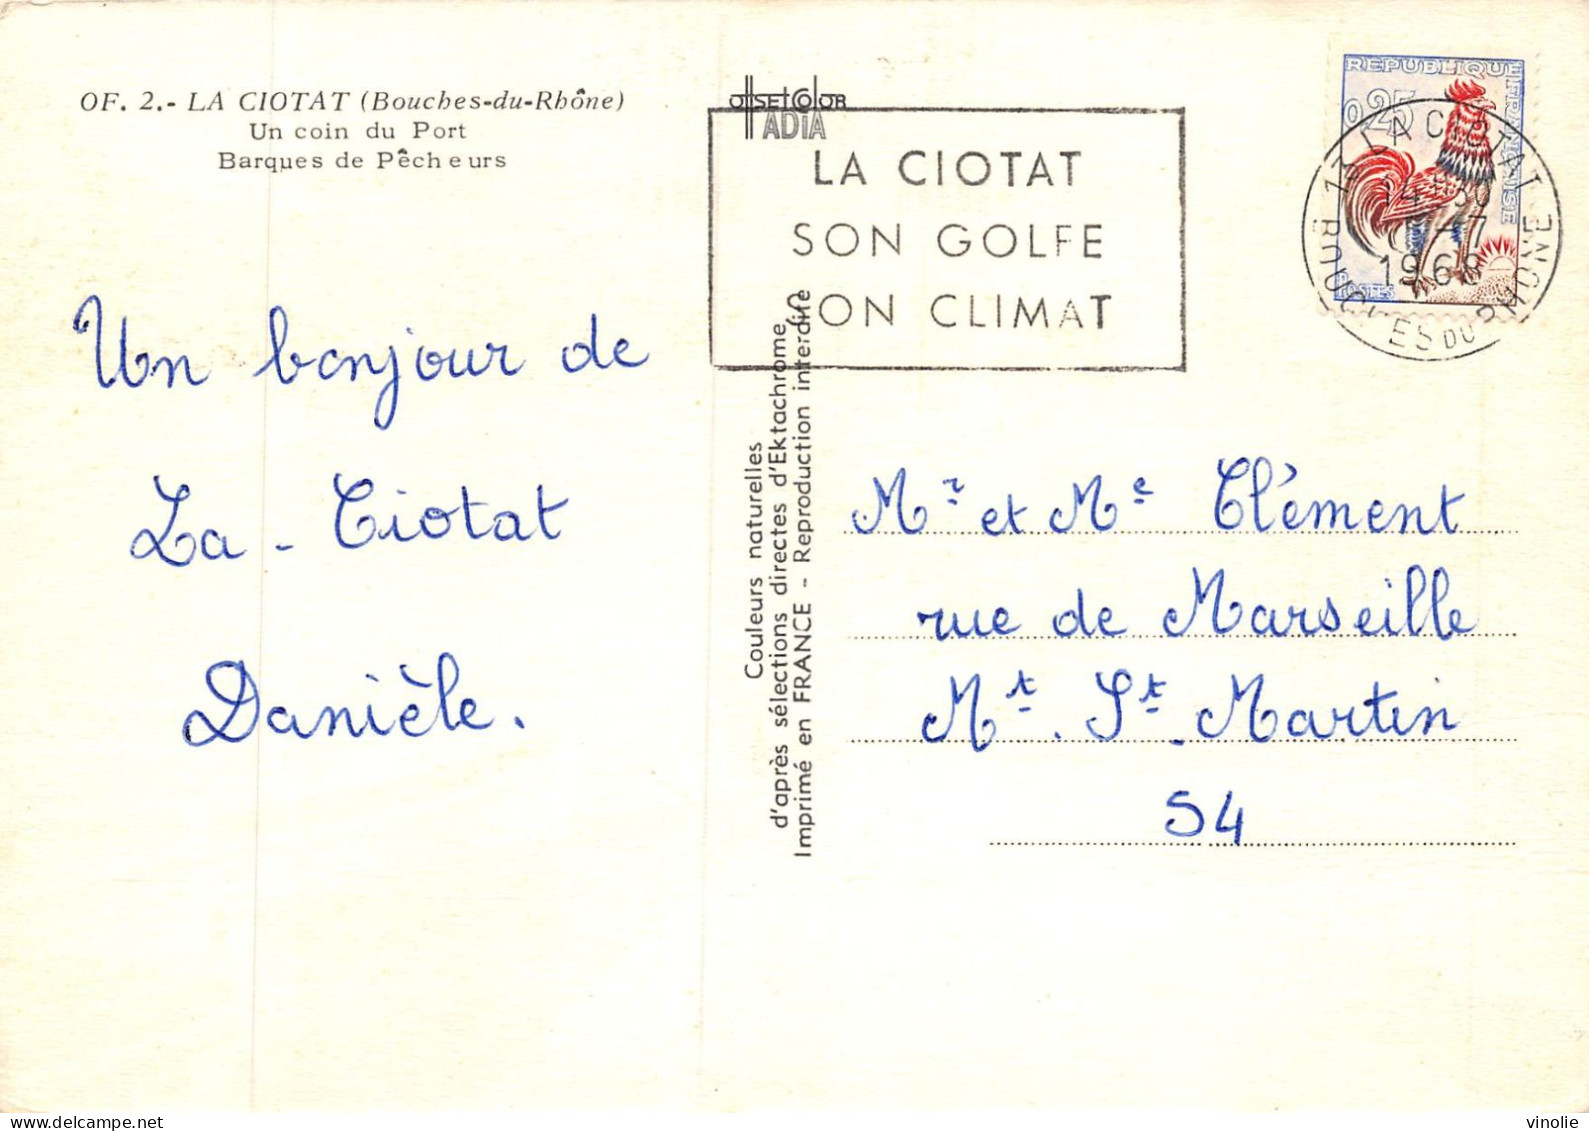 OF. 2.- LA CIOTAT (Bouches-du-Rhône)
Un coin du Port
Barques de Pêcheurs
Un bonjour de
La - Ciotat
Danièle.
OFFSETCOLOR
ADIA
LA CIOTAT
SON GOLFE
SON CLIMAT
Couleurs naturelles
d'après sélections directes d'Ektachrome
Imprimé en FRANCE - Reproduction interdite
REPUBLIQUE FRANÇAISE
0,25
POSTES
13 LA CIOTAT
14H30
-7
1968
BOUCHES DU RHONE
Mr et Me Clément
rue de Marseille
Mt. St. Martin
54
vinolie